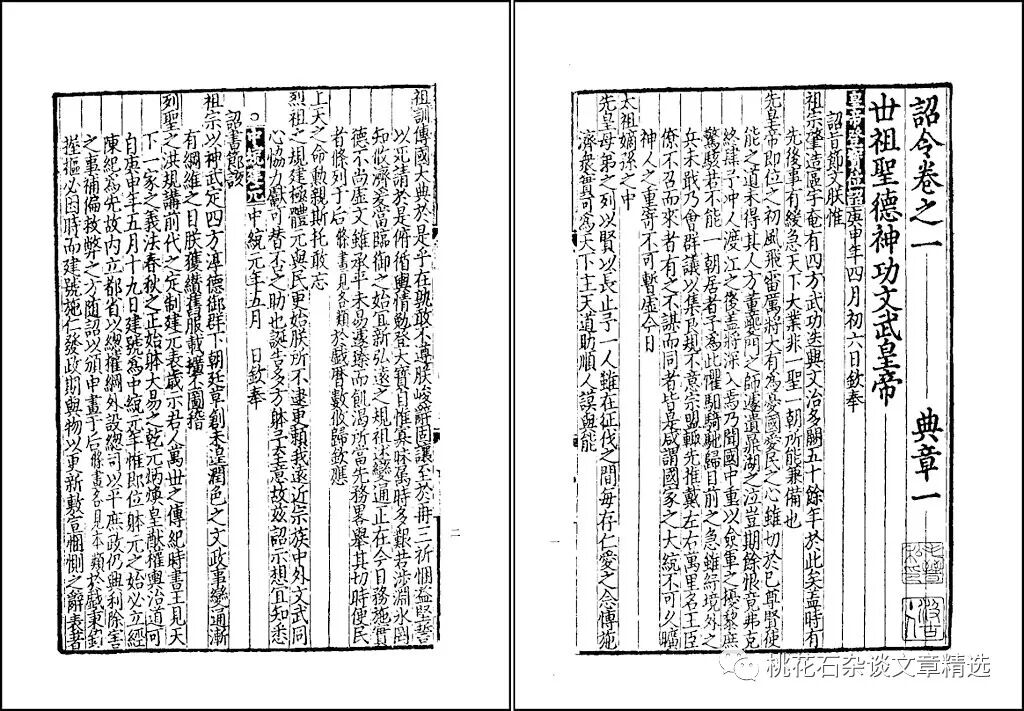 詔令卷之一 典章一
丗祖聖德神功文武皇帝
皇帝登寳位詔 庚申年四月初六日欽奉
詔旨節文朕惟
祖宗肇造區宇奄有四方武功迭興文治多闕五十餘年於此矣盖時有
先後事有緩急天下大業非一聖一朝所能兼備也
先皇帝即位之初風飛雷厲將大有為憂國愛民之心雖切於己尊賢使
能之道未得其人方董夔門之師遽遺鼎湖之泣豈期餘恨竟弗克
終肄予冲人渡江之後盖將深入焉乃聞國中重以僉軍之擾黎庶
驚駭若不能一朝居者予為此懼馹騎馳歸目前之急雖紓境外之
兵未戢乃會群議以集良規不意宗盟輒先推戴左右萬里名王巨
僚不召而來者有之不謀而同者皆是咸謂國家之大統不可久曠
神人之重寄不可暫虛今日
太祖嫡孫之中
先皇母弟之列以賢以長止予一人雖在征伐之間每存仁愛之念博施
濟衆實可為天下主天道助順人謨與能
一
祖訓傳國大典於是乎在孰敢不遵朕峻辭固讓至於再三祈懇益堅誓
以死請於是俯循輿情勉登大寶自惟寡昧屬時多艱若涉淵氷罔
知攸濟爰當臨御之始宜新弘遠之規祖述變通正在今日務施實
德不尚虛文雖承平未易遽臻而飢渴所當先務畧舉其切時便民
者條列于后 條畫見各類 於戲曆數攸歸欽應
上天之命勳親斯托敢忘
烈祖之規建極體元與民更始朕所不逮更賴我遠近宗族中外文武同
心恊力獻可替否之助也誕告多方體予至意故玆詔示想宜知悉
中統建元 中統元年五月 日欽奉
詔書節該
祖宗以神武定四方淳德御群下朝廷草創未遑潤色之文政事變通漸
有綱維之目朕獲纘舊服載擴丕圖稽
列聖之洪規講前代之定制建元表歲示君人萬世之傳紀時書王見天
下一家之義法春秋之正始體大易之乾元炳煥皇猷權輿治道可
自庚申年五月十九日建號為中統元年惟即位體元之始必立經
陳紀為先故内立都省以總權綱外設總司以平庶政仍興利除害
之事補偏救弊之方隨詔以頒申畫于后 條畫各見本類 於戲秉籙
握樞必因時而建號施仁發政期與物以更新敷宣懇惻之辭表著
二
桃花石杂谈文章精选